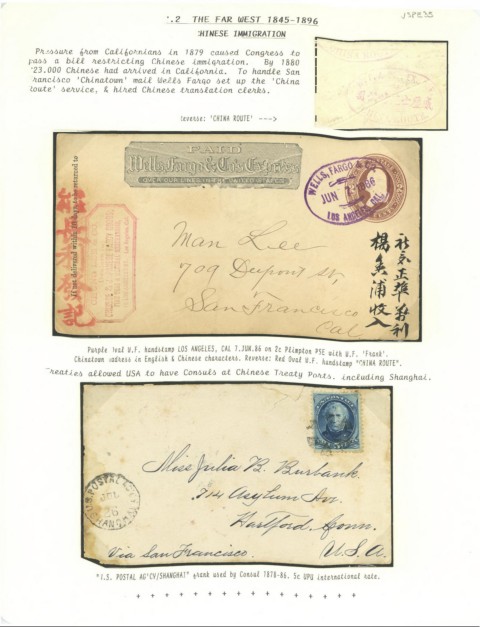 .2 THE FAR WEST 1845-1896
CHINESE IMMIGRATION
Pressure from Californians in 1879 caused Congress to
pass a bill restricting Chinese immigration. By 1880
'23.000 Chinese had arrived in California. To handle San
rancisco 'Chinatown' mail Wells Fargo set up the 'China
oute' service, & hired Chinese translation clerks.
reverse: 'CHINA ROUTE' --->
PAID
Wells, Fargo & Co's Express
WELLS, FARGO & CO
JUN 7 1886
LOS ANGELES, CAL.
If not delivered within 10 days to be returned to
Man Lee
709 Dupont St,
San Francisco
Cal
楊 浦收入
Purple Oval W.F. handstamp LOS ANGELES, CAL 7.JUN.86 on 2c Plimpton PSE with W.F. 'Frank'.
Chinatown address in English & Chinese characters. Reverse: Red Oval W.F. handstamp "CHINA ROUTE".
reaties allowed USA to have Consuls at Chinese Treaty Ports, including Shanghai.
Miss Julia B. Burbank
714 Asylum Av.
Hartford. Conn.
Via San Francisco. U.S.A.
U.S. POSTAL
JUL
26
SHANGHAI
".S. POSTAL AG'CY/SHANGHAI" frank used by Consul 1878-86. 5c UPU international rate.
+ + + + + + + + + + + + + + +